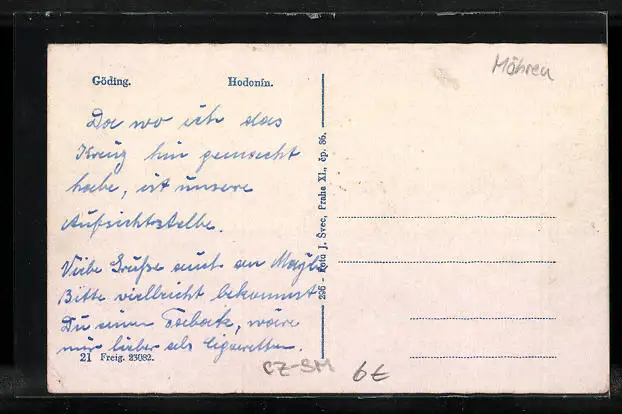 Göding. Hodonín.
Mähren
Da wo ich das
Kreuz hin gemacht
habe, ist unsere
Aufsichtstelle.
Viele Grüße auch an
Bitte vielleicht bekommst
Du einen Tabak, wäre
mir lieber als Cigaretten.
21 Freig. 23082.
236 - Foto J. Švec, Praha XI., čp. 86.
CZ-SM 6€